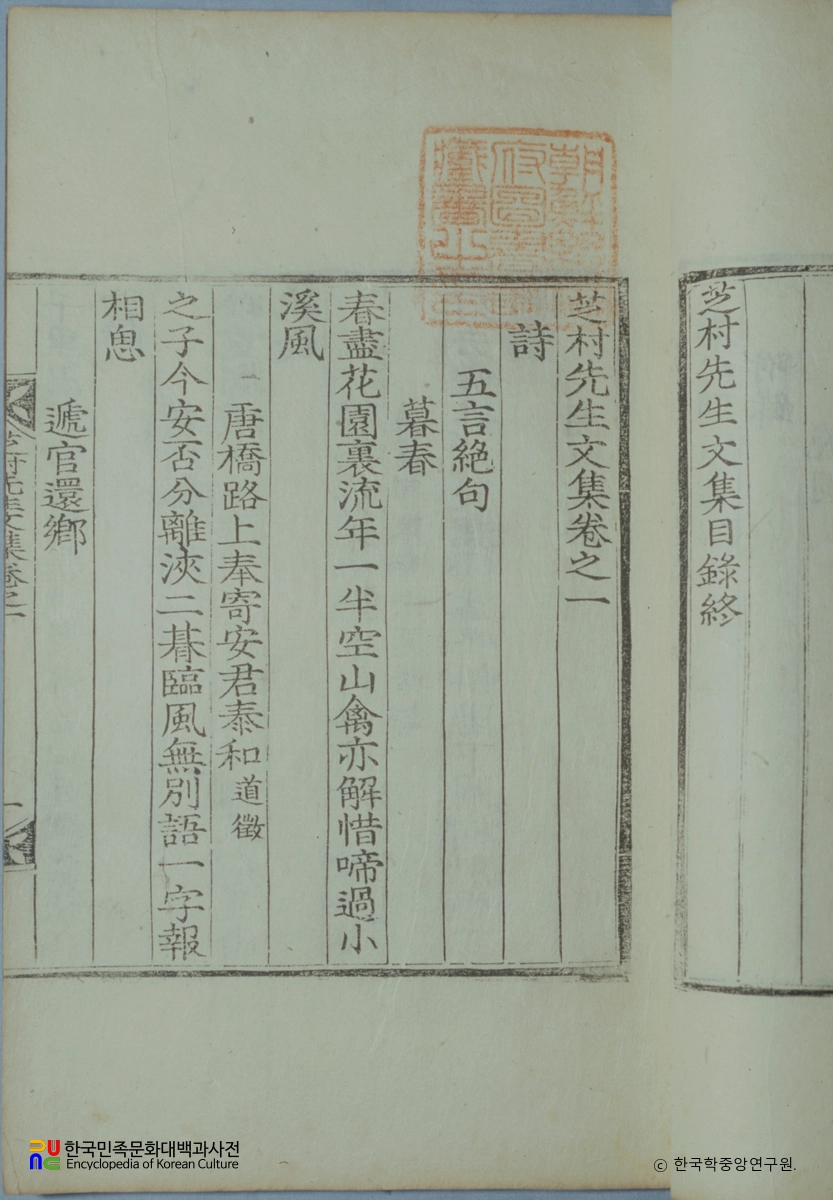 芝村先生文集目錄終
朝鮮總督
府圖書館
藏書之印
芝村先生文集卷之一
詩
五言絶句
暮春
春盡花園裏流年一半空山禽亦解惜啼過小
溪風
唐橋路上奉寄安君泰和道徵
之子今安否分離浹二朞臨風無別語一字報
相恖
遞官還鄕
芝村先生文集卷之一
一
한국민족문화대백과사전
Encyclopedia of Korean Culture
ⓒ 한국학중앙연구원.